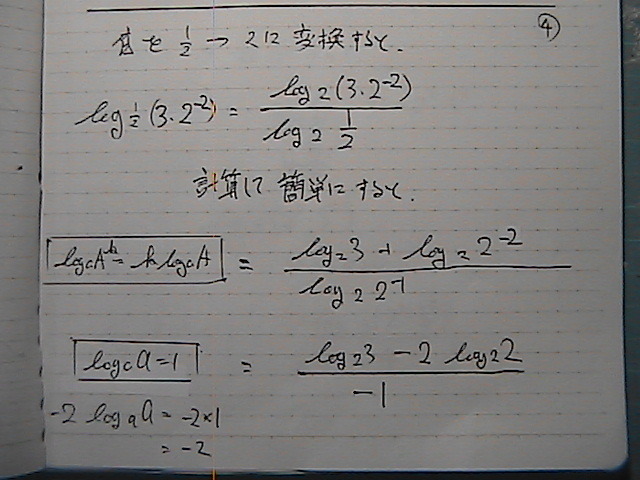 ④
底を 1/2 → 2に変換すると.
log_{1/2}(3・2^{-2}) = log_2(3・2^{-2}) / log_2 1/2
計算して簡単にすると.
log_a A^k = k log_a A = (log_2 3 + log_2 2^{-2}) / log_2 2^{-1}
log_a a = 1 = (log_2 3 - 2 log_2 2) / -1
-2 log_a a = -2×1
= -2